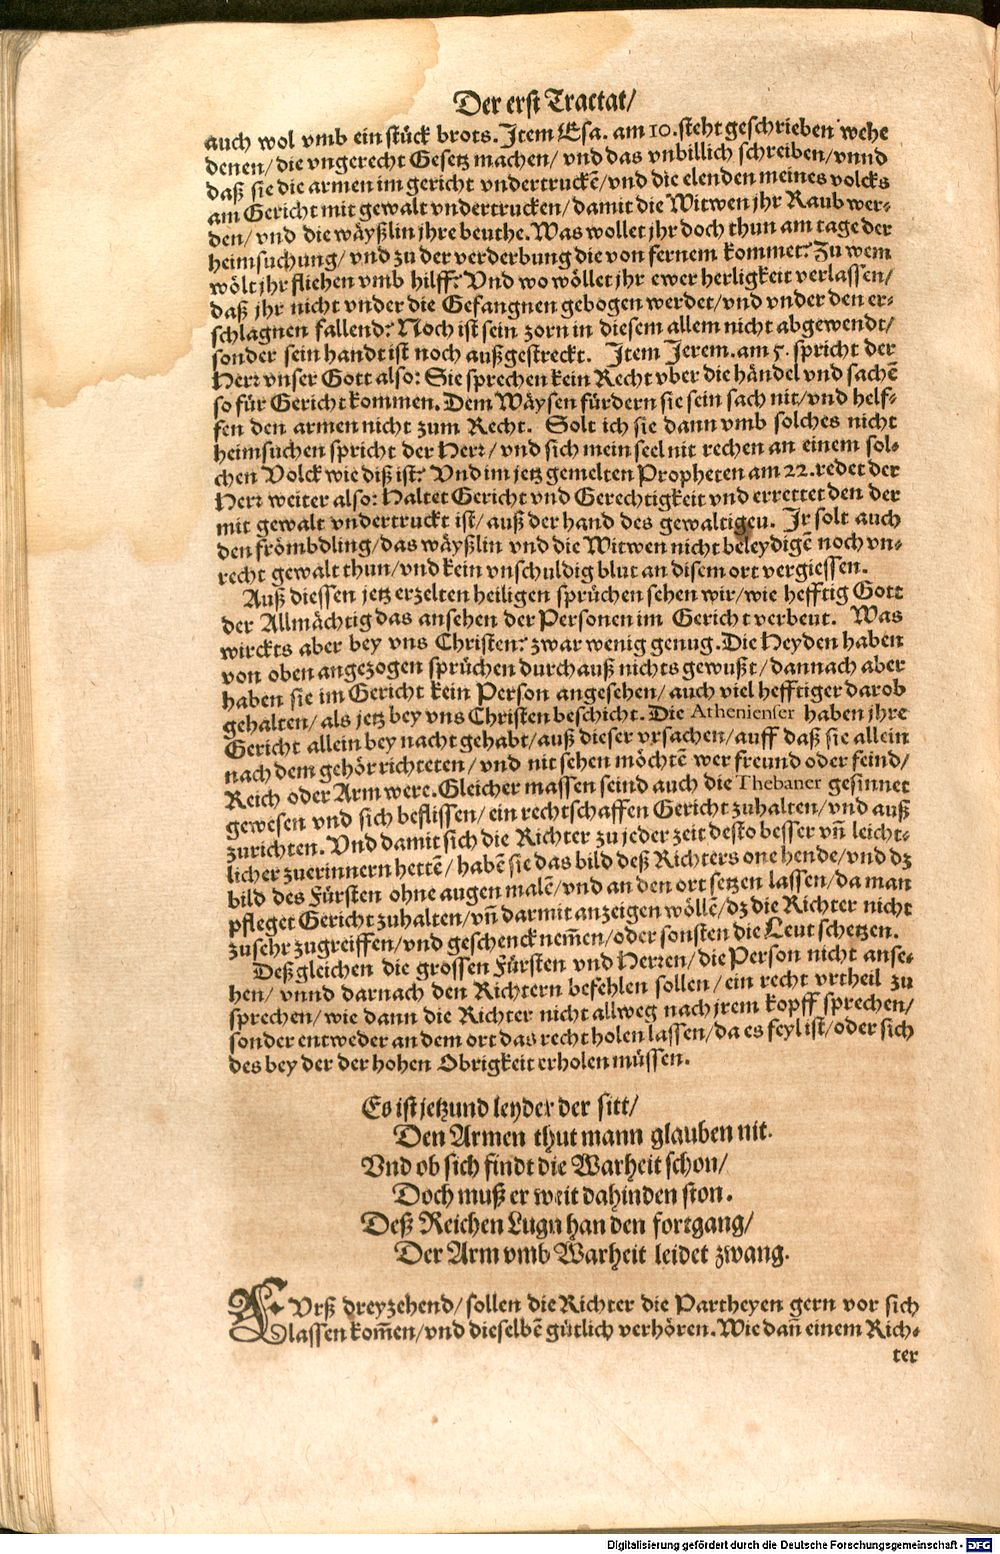 Der erst Tractat/
auch wol vmb ein stück brots. Item Esa. am 10. steht geschrieben wehe
denen/ die vngerecht Gesetz machen/ vnd das vnbillich schreiben/ vnnd
daß sie die armen im gericht vndertruckẽ/ vnd die elenden meines volcks
am Gericht mit gewalt vndertrucken/ damit die Witwen jhr Raub wer-
den/ vnd die wäyßlin jhre beuthe. Was wollet jhr doch thun am tage der
heimsuchung/ vnd zu der verderbung die von fernem kommet? Zu wem
wölt jhr fliehen vmb hilff? Vnd wo wöllet jhr ewer herligkeit verlassen/
daß jhr nicht vnder die Gefangnen gebogen werdet/ vnd vnder den er-
schlagnen fallend? Noch ist sein zorn in diesem allem nicht abgewendt/
sonder sein handt ist noch außgestreckt. Item Jerem. am 5. spricht der
Herr vnser Gott also: Sie sprechen kein Recht vber die händel vnd sachẽ
so für Gericht kommen. Dem Wäysen fürdern sie sein sach nit/ vnd helf-
fen den armen nicht zum Recht. Solt ich sie dann vmb solches nicht
heimsuchen spricht der Herr/ vnd sich mein seel nit rechen an einem sol-
chen Volck wie diß ist? Vnd im jetz gemelten Propheten am 22. redet der
Herr weiter also: Haltet Gericht vnd Gerechtigkeit vnd errettet den der
mit gewalt vndertruckt ist/ auß der hand des gewaltigen. Ir solt auch
den frömbdling/ das wäyßlin vnd die Witwen nicht beleydigẽ noch vn-
recht gewalt thun/ vnd kein vnschuldig blut an disem ort vergiessen.
Auß diessen jetz erzelten heiligen sprüchen sehen wir/ wie hefftig Gott
der Allmächtig das ansehen der Personen im Gericht verbeut. Was
wirckts aber bey vns Christen? zwar wenig genug. Die Heyden haben
von oben angezogen sprüchen durchauß nichts gewußt/ dannach aber
haben sie im Gericht kein Person angesehen/ auch viel hefftiger darob
gehalten/ als jetz bey vns Christen beschicht. Die Athenienser haben jhre
Gericht allein bey nacht gehabt/ auß dieser vrsachen/ auff daß sie allein
nach dem gehör richteten/ vnd nit sehen möchtẽ wer freund oder feind/
Reich oder Arm were. Gleicher massen seind auch die Thebaner gesinnet
gewesen vnd sich beflissen/ ein rechtschaffen Gericht zuhalten/ vnd auß
zurichten. Vnd damit sich die Richter zu jeder zeit desto besser vñ leicht-
licher zuerinnern hettẽ/ habẽ sie das bild deß Richters one hende/ vnd dz
bild des Fürsten ohne augen malẽ/ vnd an den ort setzen lassen/ da man
pfleget Gericht zuhalten/ vñ darmit anzeigen wöllẽ/ dz die Richter nicht
zusehr zugreiffen/ vnd geschenck nem̃en/ oder sonsten die Leut schetzen.
Deßgleichen die grossen Fürsten vnd Herren/ die Person nicht anse-
hen/ vnnd darnach den Richtern befehlen sollen/ ein recht vrtheil zu
sprechen/ wie dann die Richter nicht allweg nach jrem kopff sprechen/
sonder entweder an dem ort das recht holen lassen/ da es feyl ist/ oder sich
des bey der der hohen Obrigkeit erholen müssen.
Es ist jetzund leyder der sitt/
Den Armen thut mann glauben nit.
Vnd ob sich findt die Warheit schon/
Doch muß er weit dahinden ston.
Deß Reichen Lugn han den fortgang/
Der Arm vmb Warheit leidet zwang.
FVrß dreyzehend/ sollen die Richter die Partheyen gern vor sich
lassen kom̃en/ vnd dieselbẽ gütlich verhören. Wie dañ einem Rich-
ter
Digitalisierung gefördert durch die Deutsche Forschungsgemeinschaft - DFG